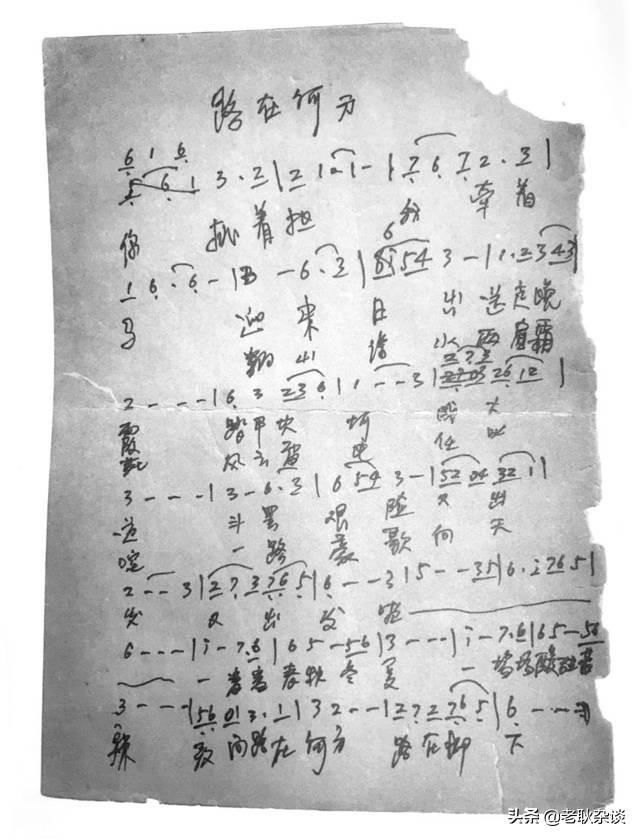 路在何方
6 1 6
6 1 3 · 2 | 2 1 · 1 - | 7 6 7 2 · 3 |
你 挑着担 我 牵着
1 6 · 6 - | 3 - 6 · 3 | 54 3 - | 1 · 2 3 43
马 迎来日出 送走晚
翻山 水 两肩霜
2 - - - | 6 3 23 6 | 1 - - 3 | 26 12 |
霞 踏平坎坷 成大
风云雷电 任
3 - - - | 3 - 6 · 3 | 6 54 3 - | 52 04 32 1 |
道 斗罢艰险 又出
一路豪歌 向天
2 - - 3 | 2 7 3 76 5 | 6 - - - 3 | 5 - - 35 | 6 · i 765 |
发 又出发 啦
6 - - - | i - 7·6 | 65 - 56 | 3 - - - | i - 7·6 | 65 - 56
一番番春秋冬夏 一场场酸甜苦
3 - - - | 56 01 3·1 | 32 - - | 27 2 76 5 | 6 - - -
辣 敢问路在何方 路在脚下
头条 @老耿杂谈